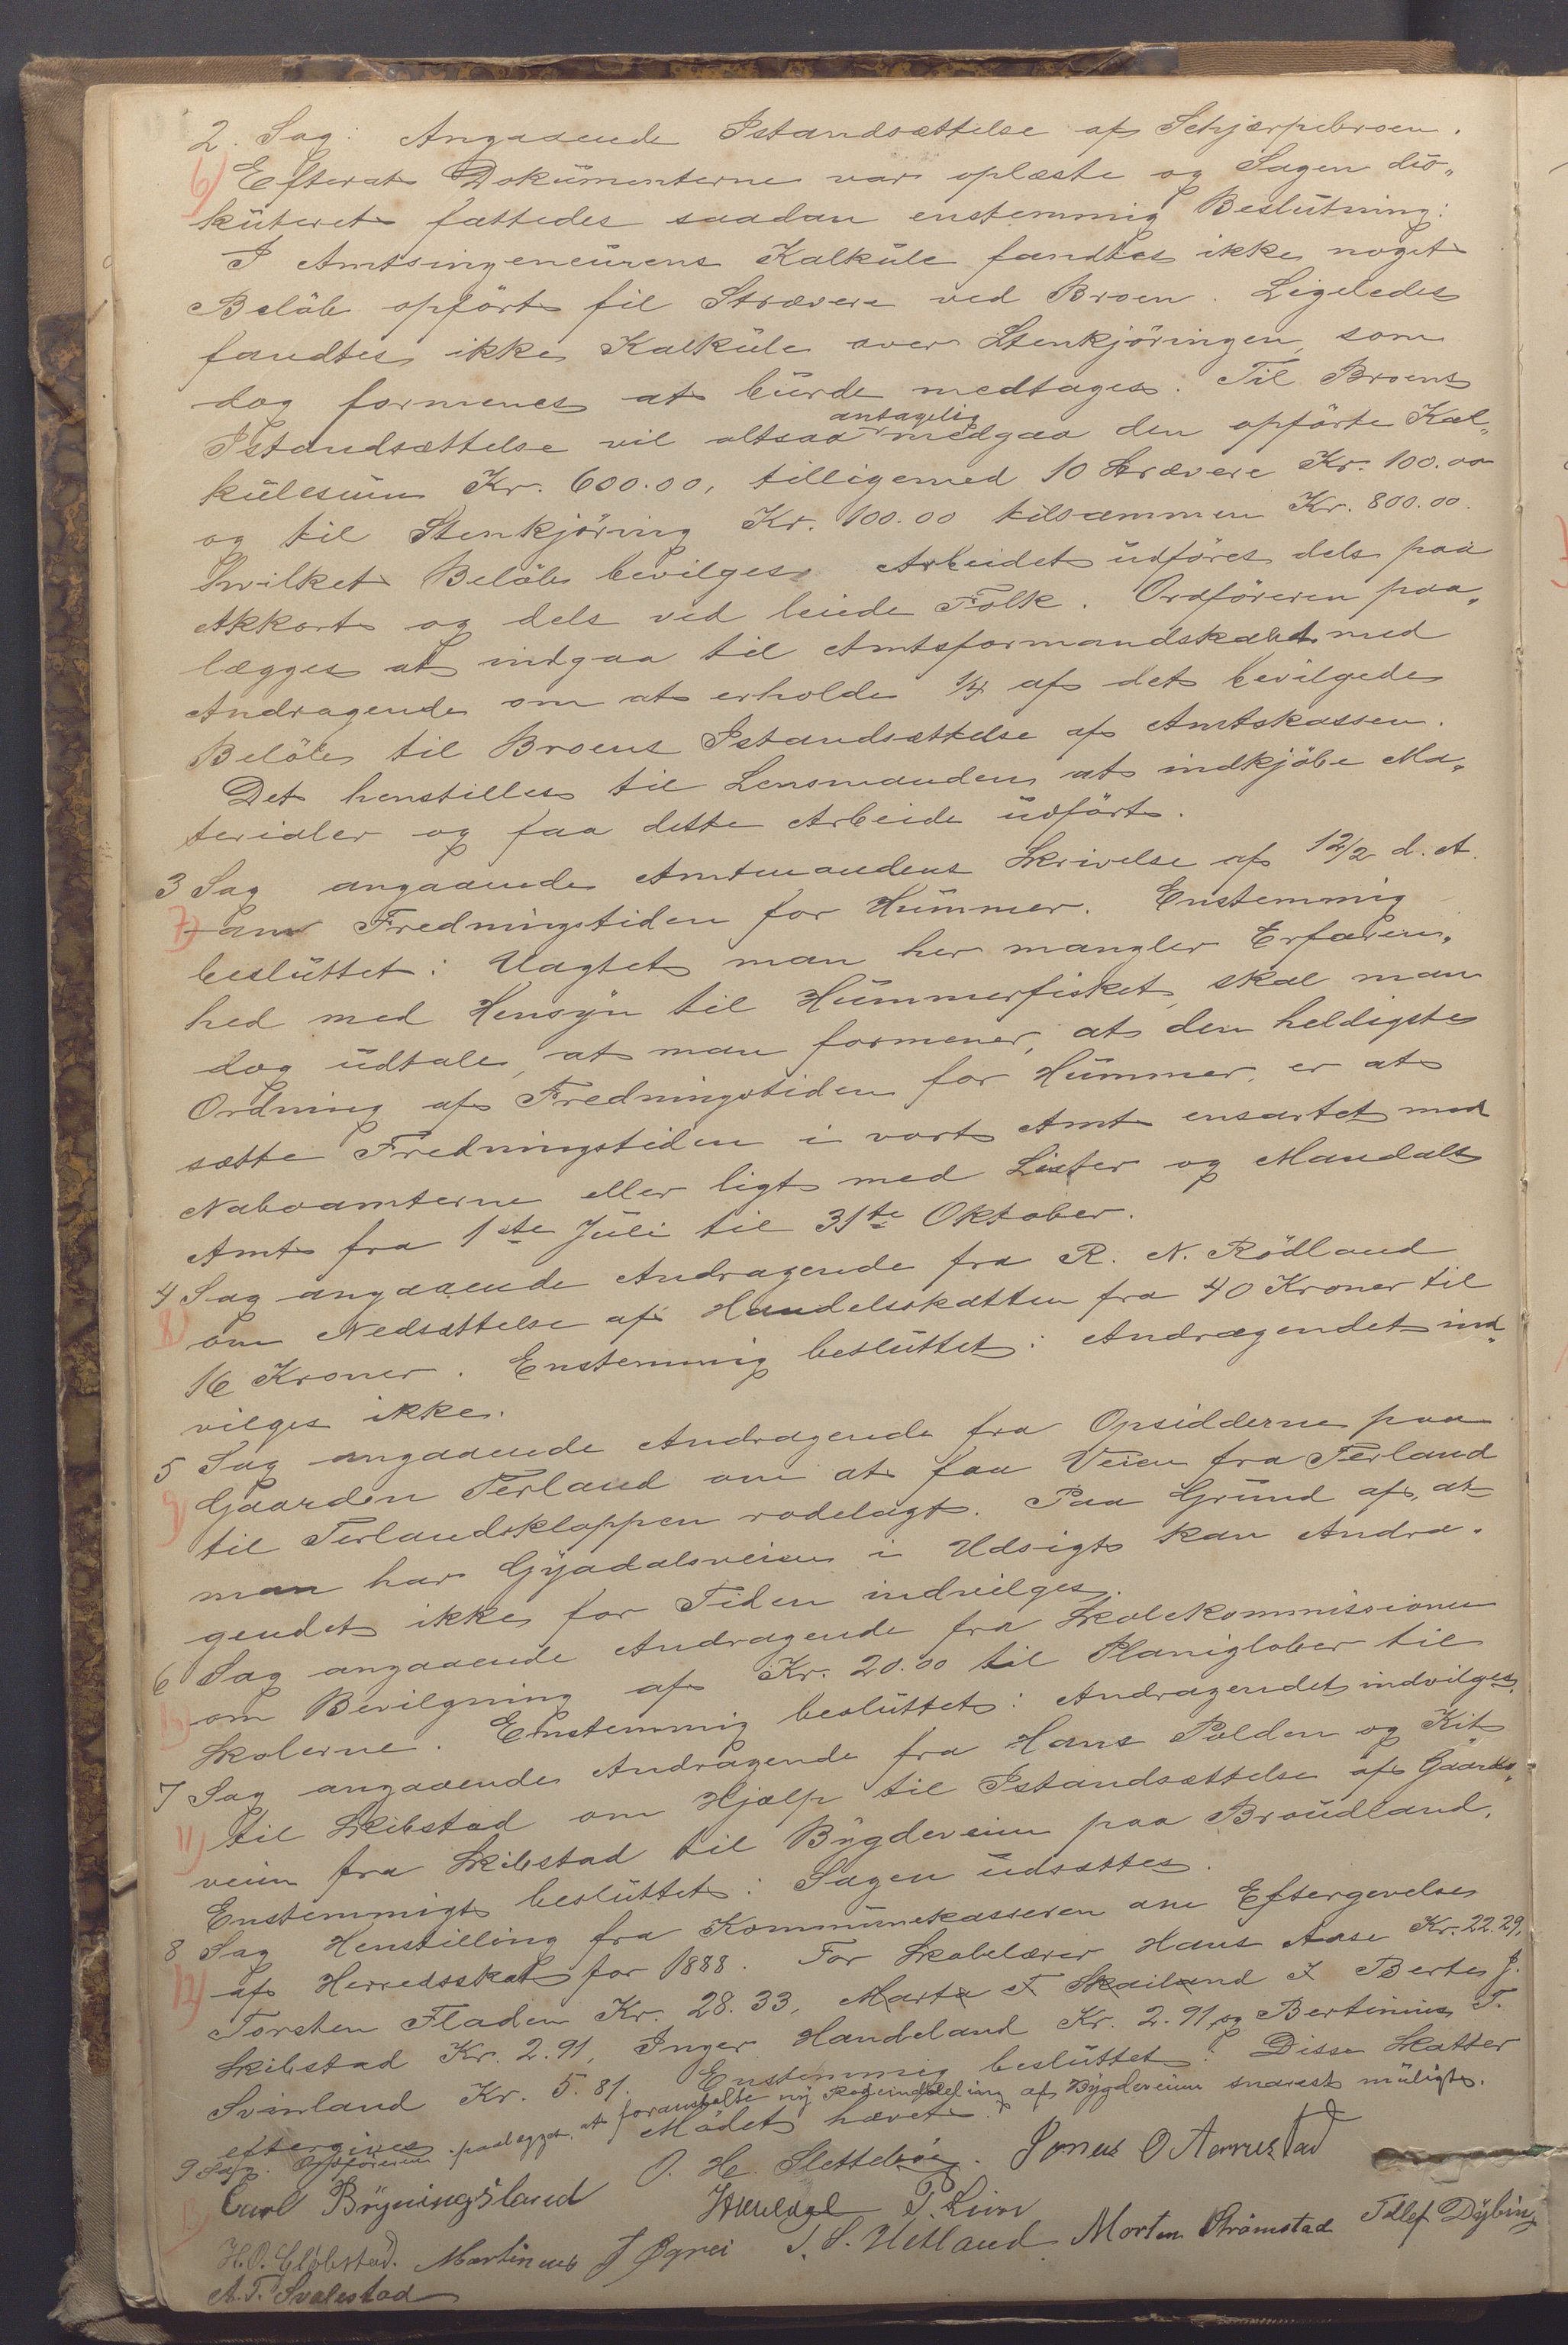 2. Sag: Angaaende Istandsættelse af Schjærpebroen.
6) Efterat Dokumenterne var oplæste og Sagen dis„
kuteret fattedes saadan enstemmig Beslutning:
I Amtsingeneurens Kalkule fandtes ikke noget
Beløb opført til Strævere ved Broen. Ligeledes
fandtes ikke Kalkule over Stenkjøringen, som
dog formenes at burde medtages. Til Broens
antagelig
Istandsættelse vil altsaa medgaa den opførte Kal„
kulesum Kr. 600.00, tilligemed 10 Strævere Kr. 100.00
og til Stenkjøring Kr. 100.00 tilsammen Kr. 800.00.
Hvilket Beløb bevilges. Arbeidet udføres dels paa
Akkort og dels ved leiede Folk. Ordføreren paa„
lægges at indgaa til Amtsformandskabet med
Andragende om at erholde 1/4 af det bevilgede
Beløb til Broens Istandsættelse af Amtskassen.
Det henstilles til Lensmanden at indkjøbe Ma„
terialer og faa dette Arbeide udført.
3 Sag angaaende Amtmandens Skrivelse af 12/2 d. A.
7) om Fredningstiden for Hummer. Enstemmig
besluttet: Uagtet man her mangler Erfaren„
hed med Hensyn til Hummerfisket, skal man
dog udtale, at man formener, at den heldigste
Ordning af Fredningstiden for Hummer, er at
sætte Fredningstiden i vort Amt ensartet med
Naboamterne eller ligt med Lister og Mandals
Amt fra 1ste Juli til 31te Oktober.
4 Sag angaaende Andragende fra R. N. Rødland
8) om Nedsættelse af Handelsskatten fra 40 Kroner til
16 Kroner. Enstemmig besluttet: Andragendet ind„
vilges ikke.
5 Sag angaaende Andragende fra Opsidderne paa
9) Gaarden Terland om at faa Veien fra Terland
til Terlandsklappen rodelagt. Paa Grund af, at
man har Gyadalsveien i Udsigt kan Andra„
gendet ikke for Tiden indvilges.
6 Sag angaaende Andragende fra Skolekommissionen
10) om Bevilgning af Kr. 20.00 til Planiglober til
Skolerne. Enstemmig besluttet: Andragendet indvilges.
7 Sag angaaende Andragende fra Hans Polden og Kit
11) til Skibstad om Hjælp til Istandsættelse af Gaards„
veien fra Skibstad til Bygdeveien paa Broudland.
Enstemmigt besluttet: Sagen udsættes.
8 Sag Henstilling fra Kommunekasseren om Eftergivelse
12) af Herredsskat for 1888. For Skolelærer Hans Aase Kr. 22.29,
Torsten Fladen Kr. 28.33, Marta T Skailand I Berte J.
Skibstad Kr. 2.91, Inger Handeland Kr. 2.91 og Bertinius T.
Svinland Kr. 5.81. Enstemmig besluttet: Disse Skatter
eftergives
9 Sag. Ordføreren paalægges, at foranstalte ny Rodeinddeling af Bygdeveiene snarest muligt.
Mødet hævet.
O. H. Slettebøe. Jonas O Aarrestad
Carl Brynningsland P. Lium
H. O. Gløbstad. Martinius J Øgrei T. S. Hetland Morten Strømstad Tollef Dybing
A. T. Svalestad